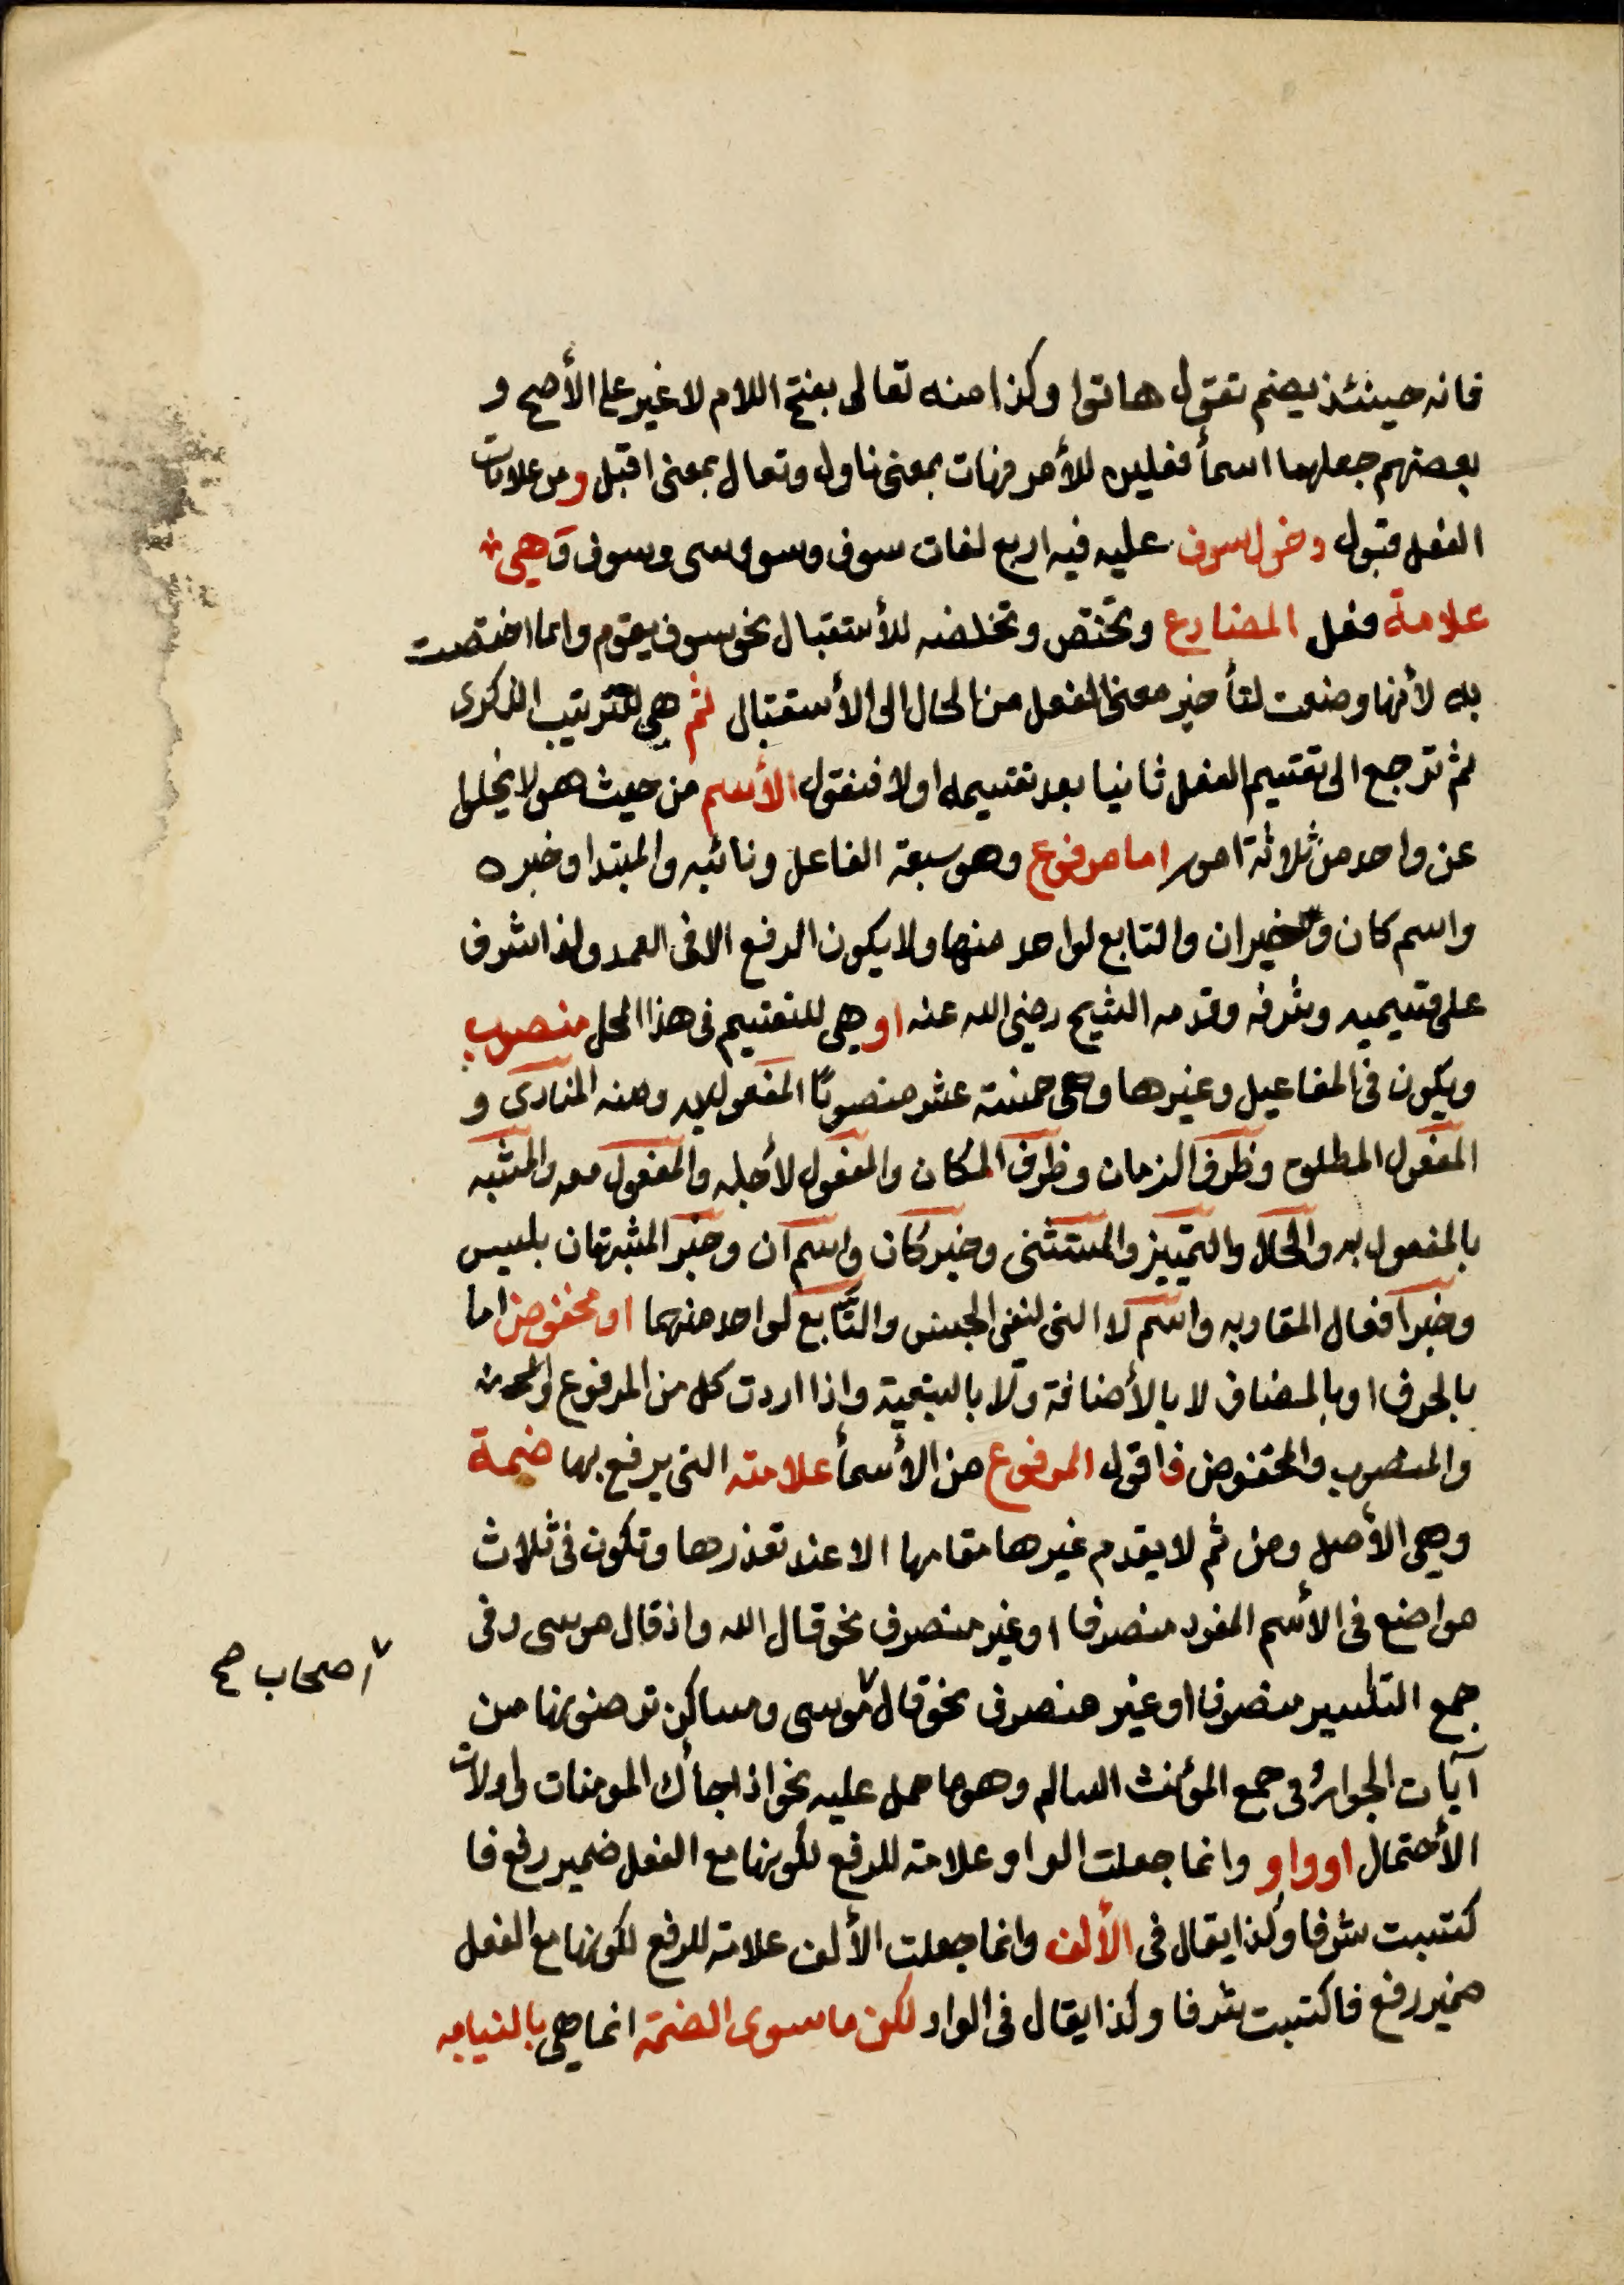 فانه حينئذ يضم تقول هاتوا وكذا منه تعالى بفتح اللام لا غير على الأصح و
بعضهم جعلهما اسمأ فعلين للأمر فهات بمعنى ناول وتعال بمعنى اقبل ومن علامات
الفعل قبول دخول سوف عليه فيه اربع لغات سوف وسو وسى وسوف وهى
علامة فعل المضارع وتختص وتخلصه للأستقبال نحو سوف يقوم وانما اختصت
به لأنها وضعت لتأخير معنى الفعل من الحال الى الأستقبال ثم هى للترتيب الذكرى
ثم ترجع الى تقسيم الفعل ثانيا بعد تقسيمه اولا فنقول الأسم من حيث هو لا يخلوا
عن واحد من ثلاثة امور اما مرفوع وهو سبعة الفاعل ونائبه والمبتدا وخبره
واسم كان وخبران والتابع لواحد منها ولا يكون الرفع الا فى العمد ولذا شرف
على قسيميه وشرفه وقدمه الشيخ رضى الله عنه او هى للتقسيم فى هذا المحل منصوب
ويكون فى المفاعيل وغيرها وهى خمسة عشر منصوبا المفعول به ومنه المنادى و
المفعول المطلق وظرف الزمان وظرف المكان والمفعول لأجله والمفعول معه والمشبه
بالمفعول به والحال والتمييز والمستثنى وخبر كان واسم ان وخبر المشبهتان بليس
وخبر افعال المقاربه واسم لا التى لنفى الجنس والتابع لواحد منهما او مخفوض اما
بالحرف او بالمضاف لا بالأضافة ولا بالتبعية واذا اردت كل من المرفوع
والمنصوب والمخفوض فاقول المرفوع من الأسمأ علامته التى يرفع بها ضمة
وهى الأصل ومن ثم لا يقدم غيرها مقامها الا عند تعذرها وتكون فى ثلاث
مواضع فى الأسم المفرد منصرفا او غير منصرف نحو قال الله واذ قال موسى وفى
جمع التكسير منصرفا او غير منصرف نحو قال موسى ومساكن ترضونها من
اصحاب صح
آيات الجوار وفى جمع المؤنث السالم وهو ما حمل عليه نحو اذا جأك المومنات واولات
الأحتمال او واو وانما جعلت الواو علامة للرفع لكونها مع الفعل ضمير رفع فا
كتسبت شرفا وكذا يقال فى الألف وانما جعلت الألف علامة للرفع لكونها مع الفعل
ضمير رفع فاكتسبت شرفا وكذا يقال فى الواو لكن ما سوى الضمة انما هى بالنيابه